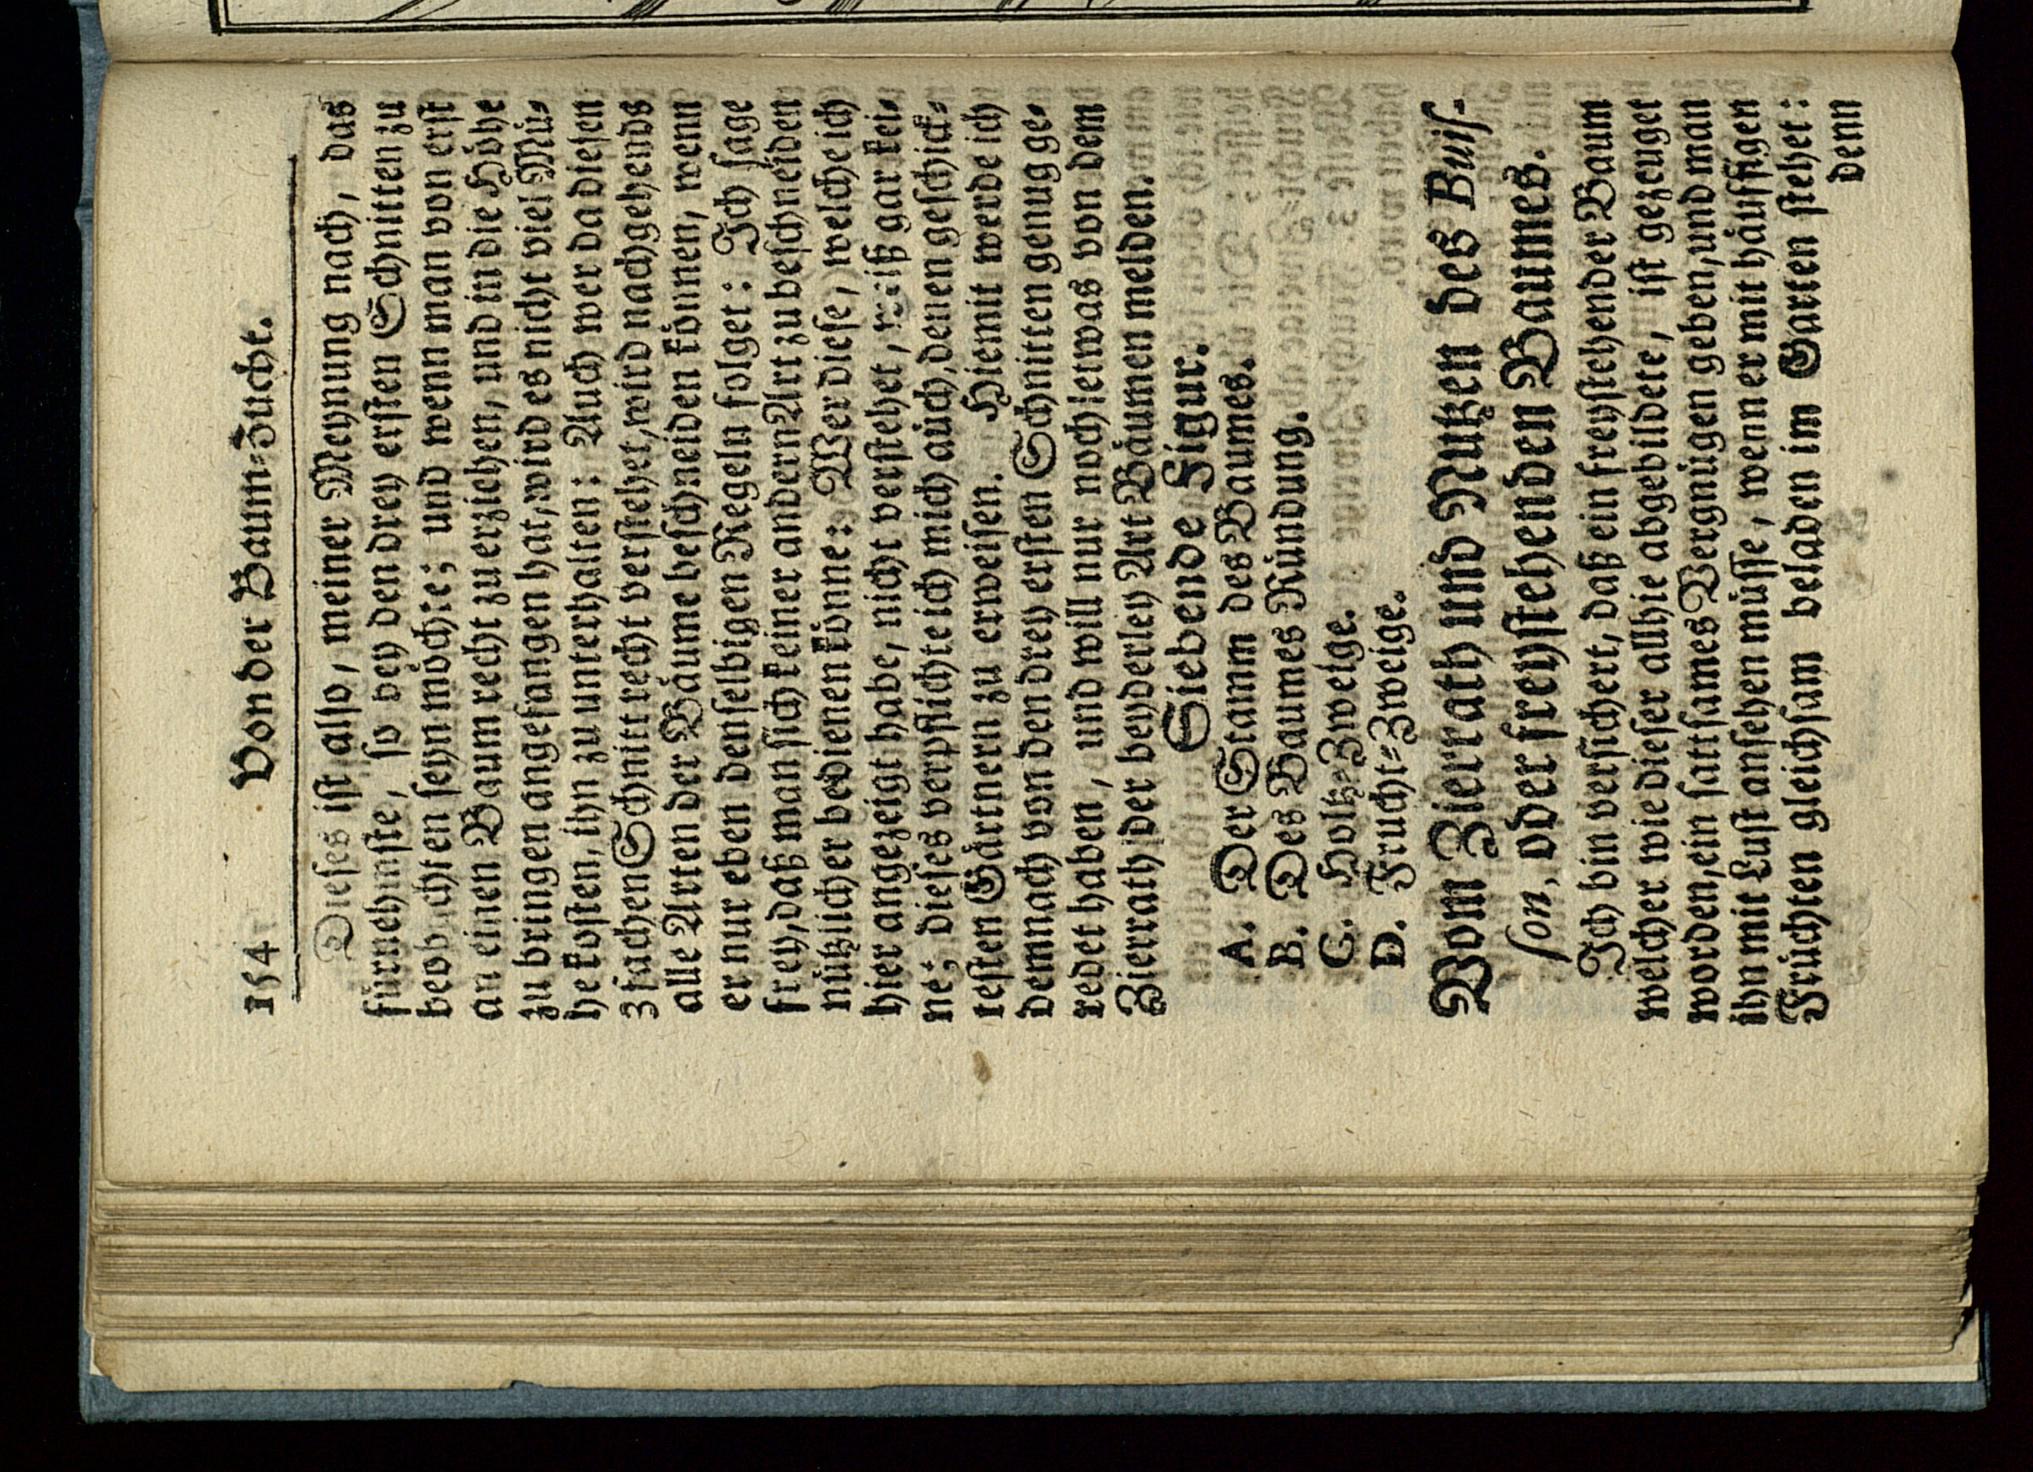 154 Von der Baum-Zucht.
Dieses ist also, meiner Meynung nach, das
fürnehmste, so bey den drey ersten Schnitten zu
beobachten seyn möchte; und wenn man von erst
an einen Baum recht zu erziehen, und in die Höhe
zu bringen angefangen hat, wird es nicht viel Mü-
he kosten, ihn zu unterhalten: Auch wer da diesen
3fachen Schnitt recht verstehet, wird nachgehends
alle Arten der Bäume beschneiden können, wenn
er nur eben denselbigen Regeln folget: Ich sage
frey, daß man sich keiner andern Art zu beschneiden
nützlicher bedienen könne: Wer diese, welche ich
hier angezeigt habe, nicht verstehet, weiß gar kei-
ne; dieses verpflichte ich mich auch, denen geschick-
testen Gärtnern zu erweisen. Hiemit werde ich
demnach von den drey ersten Schnitten genug ge-
redet haben, und will nur noch etwas von dem
Zierrath der beyderley Art Bäumen melden.
Siebende Figur.
A. Der Stamm des Baumes.
B. Des Baumes Ründung.
C. Holtz-Zweige.
D. Frucht-Zweige.
Vom Zierrath und Nutzen des Buis-
son, oder freystehenden Baumes.
Ich bin versichert, daß ein freystehender Baum
welcher wie dieser allhie abgebildete, ist gezeuget
worden, ein sattsames Vergnügen geben, und man
ihn mit Lust ansehen müsse, wenn er mit häuffigen
Früchten gleichsam beladen im Garten stehet:
denn